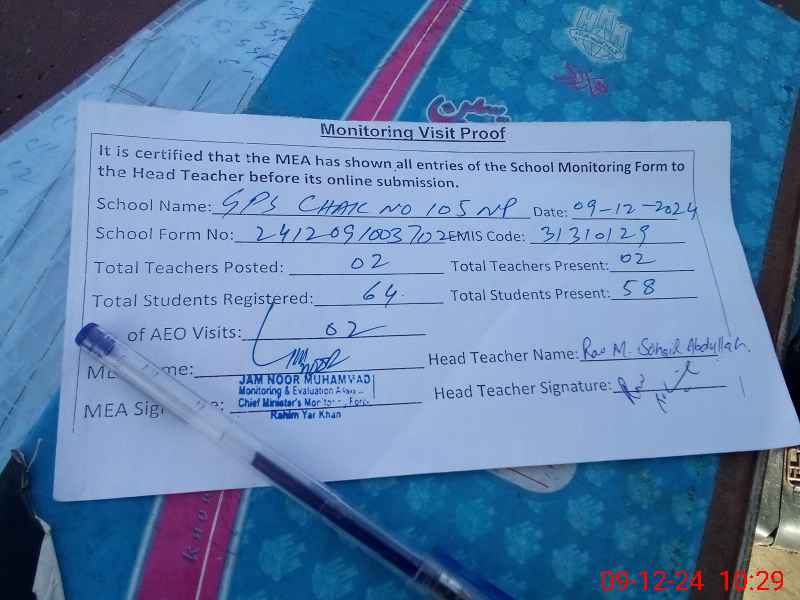 Monitoring Visit Proof
It is certified that the MEA has shown all entries of the School Monitoring Form to
the Head Teacher before its online submission.
School Name: GPS CHAK NO 105 NP Date: 09-12-2024
School Form No: 2412091003702 EMIS Code: 31310129
Total Teachers Posted: 02 Total Teachers Present: 02
Total Students Registered: 64 Total Students Present: 58
of AEO Visits: 02
Head Teacher Name: Rao M. Sohail Abdullah
JAM NOOR MUHAMMAD
Monitoring & Evaluation
Chief Minister's Monitoring Force
Rahim Yar Khan
MEA Head Teacher Signature:
09-12-24 10:29